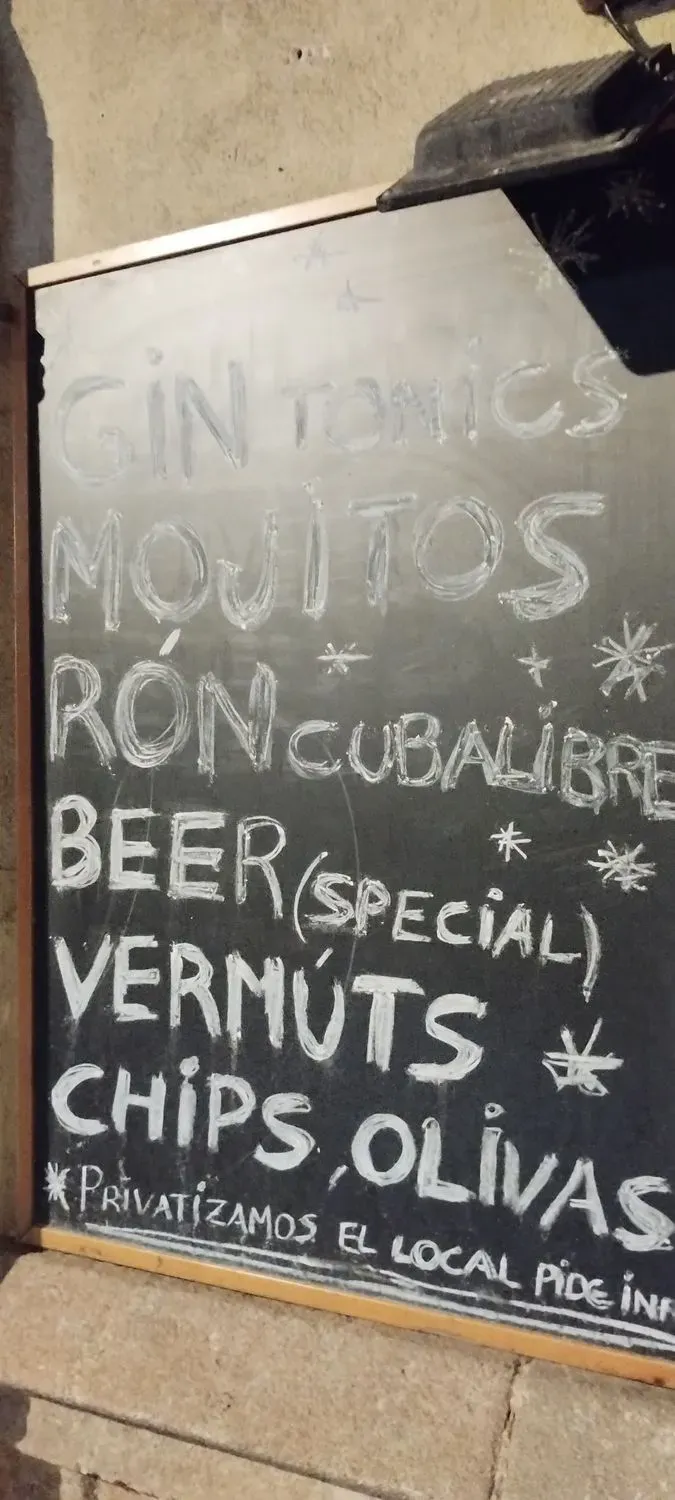 GiN TONiCS
MOJiTOS
RÓN CUBALiBRE
BEER (SPECiAL)
VERMÚTS
CHiPS, OLiVAS
* PRiVATiZAMOS EL LOCAL PiDE iNF